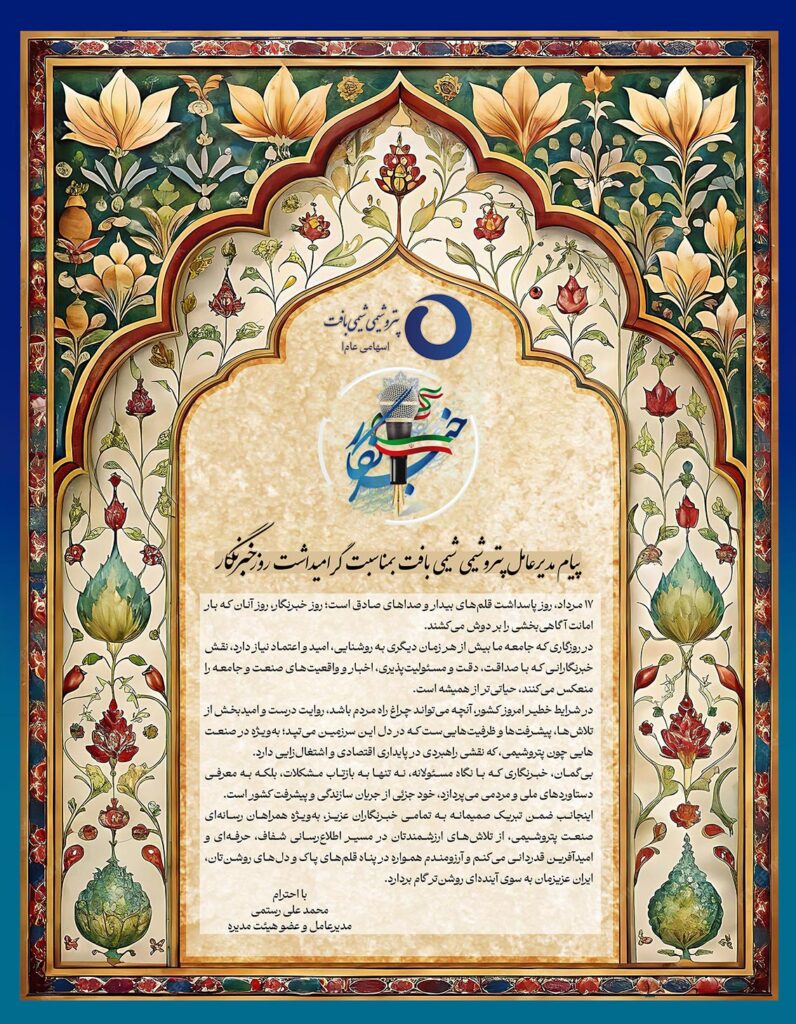 پتروشیمی شیمی بافت
(سهامی عام)
خبرنگار
پیام مدیرعامل پتروشیمی شیمی بافت بمناسبت گرامیداشت روز خبرنگار
۱۷ مرداد، روز پاسداشت قلم‌های بیدار و صداهای صادق است؛ روز خبرنگار، روز آنان که بار
امانت آگاهی‌بخشی را بر دوش می‌کشند.
در روزگاری که جامعه ما بیش از هر زمان دیگری به روشنایی، امید و اعتماد نیاز دارد، نقش
خبرنگارانی که با صداقت، دقت و مسئولیت‌پذیری، اخبار و واقعیت‌های صنعت و جامعه را
منعکس می‌کنند، حیاتی‌تر از همیشه است.
در شرایط خطیر امروز کشور، آنچه می‌تواند چراغ راه مردم باشد، روایت درست و امیدبخش از
تلاش‌ها، پیشرفت‌ها و ظرفیت‌هایی‌ست که در دل این سرزمین می‌تپد؛ به‌ویژه در صنعت
هایی چون پتروشیمی، که نقشی راهبردی در پایداری اقتصادی و اشتغال‌زایی دارد.
بی‌گمان، خبرنگاری که با نگاه مسئولانه، نه تنها به بازتاب مشکلات، بلکه به معرفی
دستاوردهای ملی و مردمی می‌پردازد، خود جزئی از جریان سازندگی و پیشرفت کشور است.
اینجانب ضمن تبریک صمیمانه به تمامی خبرنگاران عزیز، به‌ویژه همراهان رسانه‌ای
صنعت پتروشیمی، از تلاش‌های ارزشمندتان در مسیر اطلاع‌رسانی شفاف، حرفه‌ای و
امیدآفرین قدردانی می‌کنم و آرزومندم همواره در پناه قلم‌های پاک و دل‌های روشن‌تان،
ایران عزیزمان به سوی آینده‌ای روشن‌تر گام بردارد.
با احترام
محمد علی رستمی
مدیرعامل و عضو هیئت مدیره